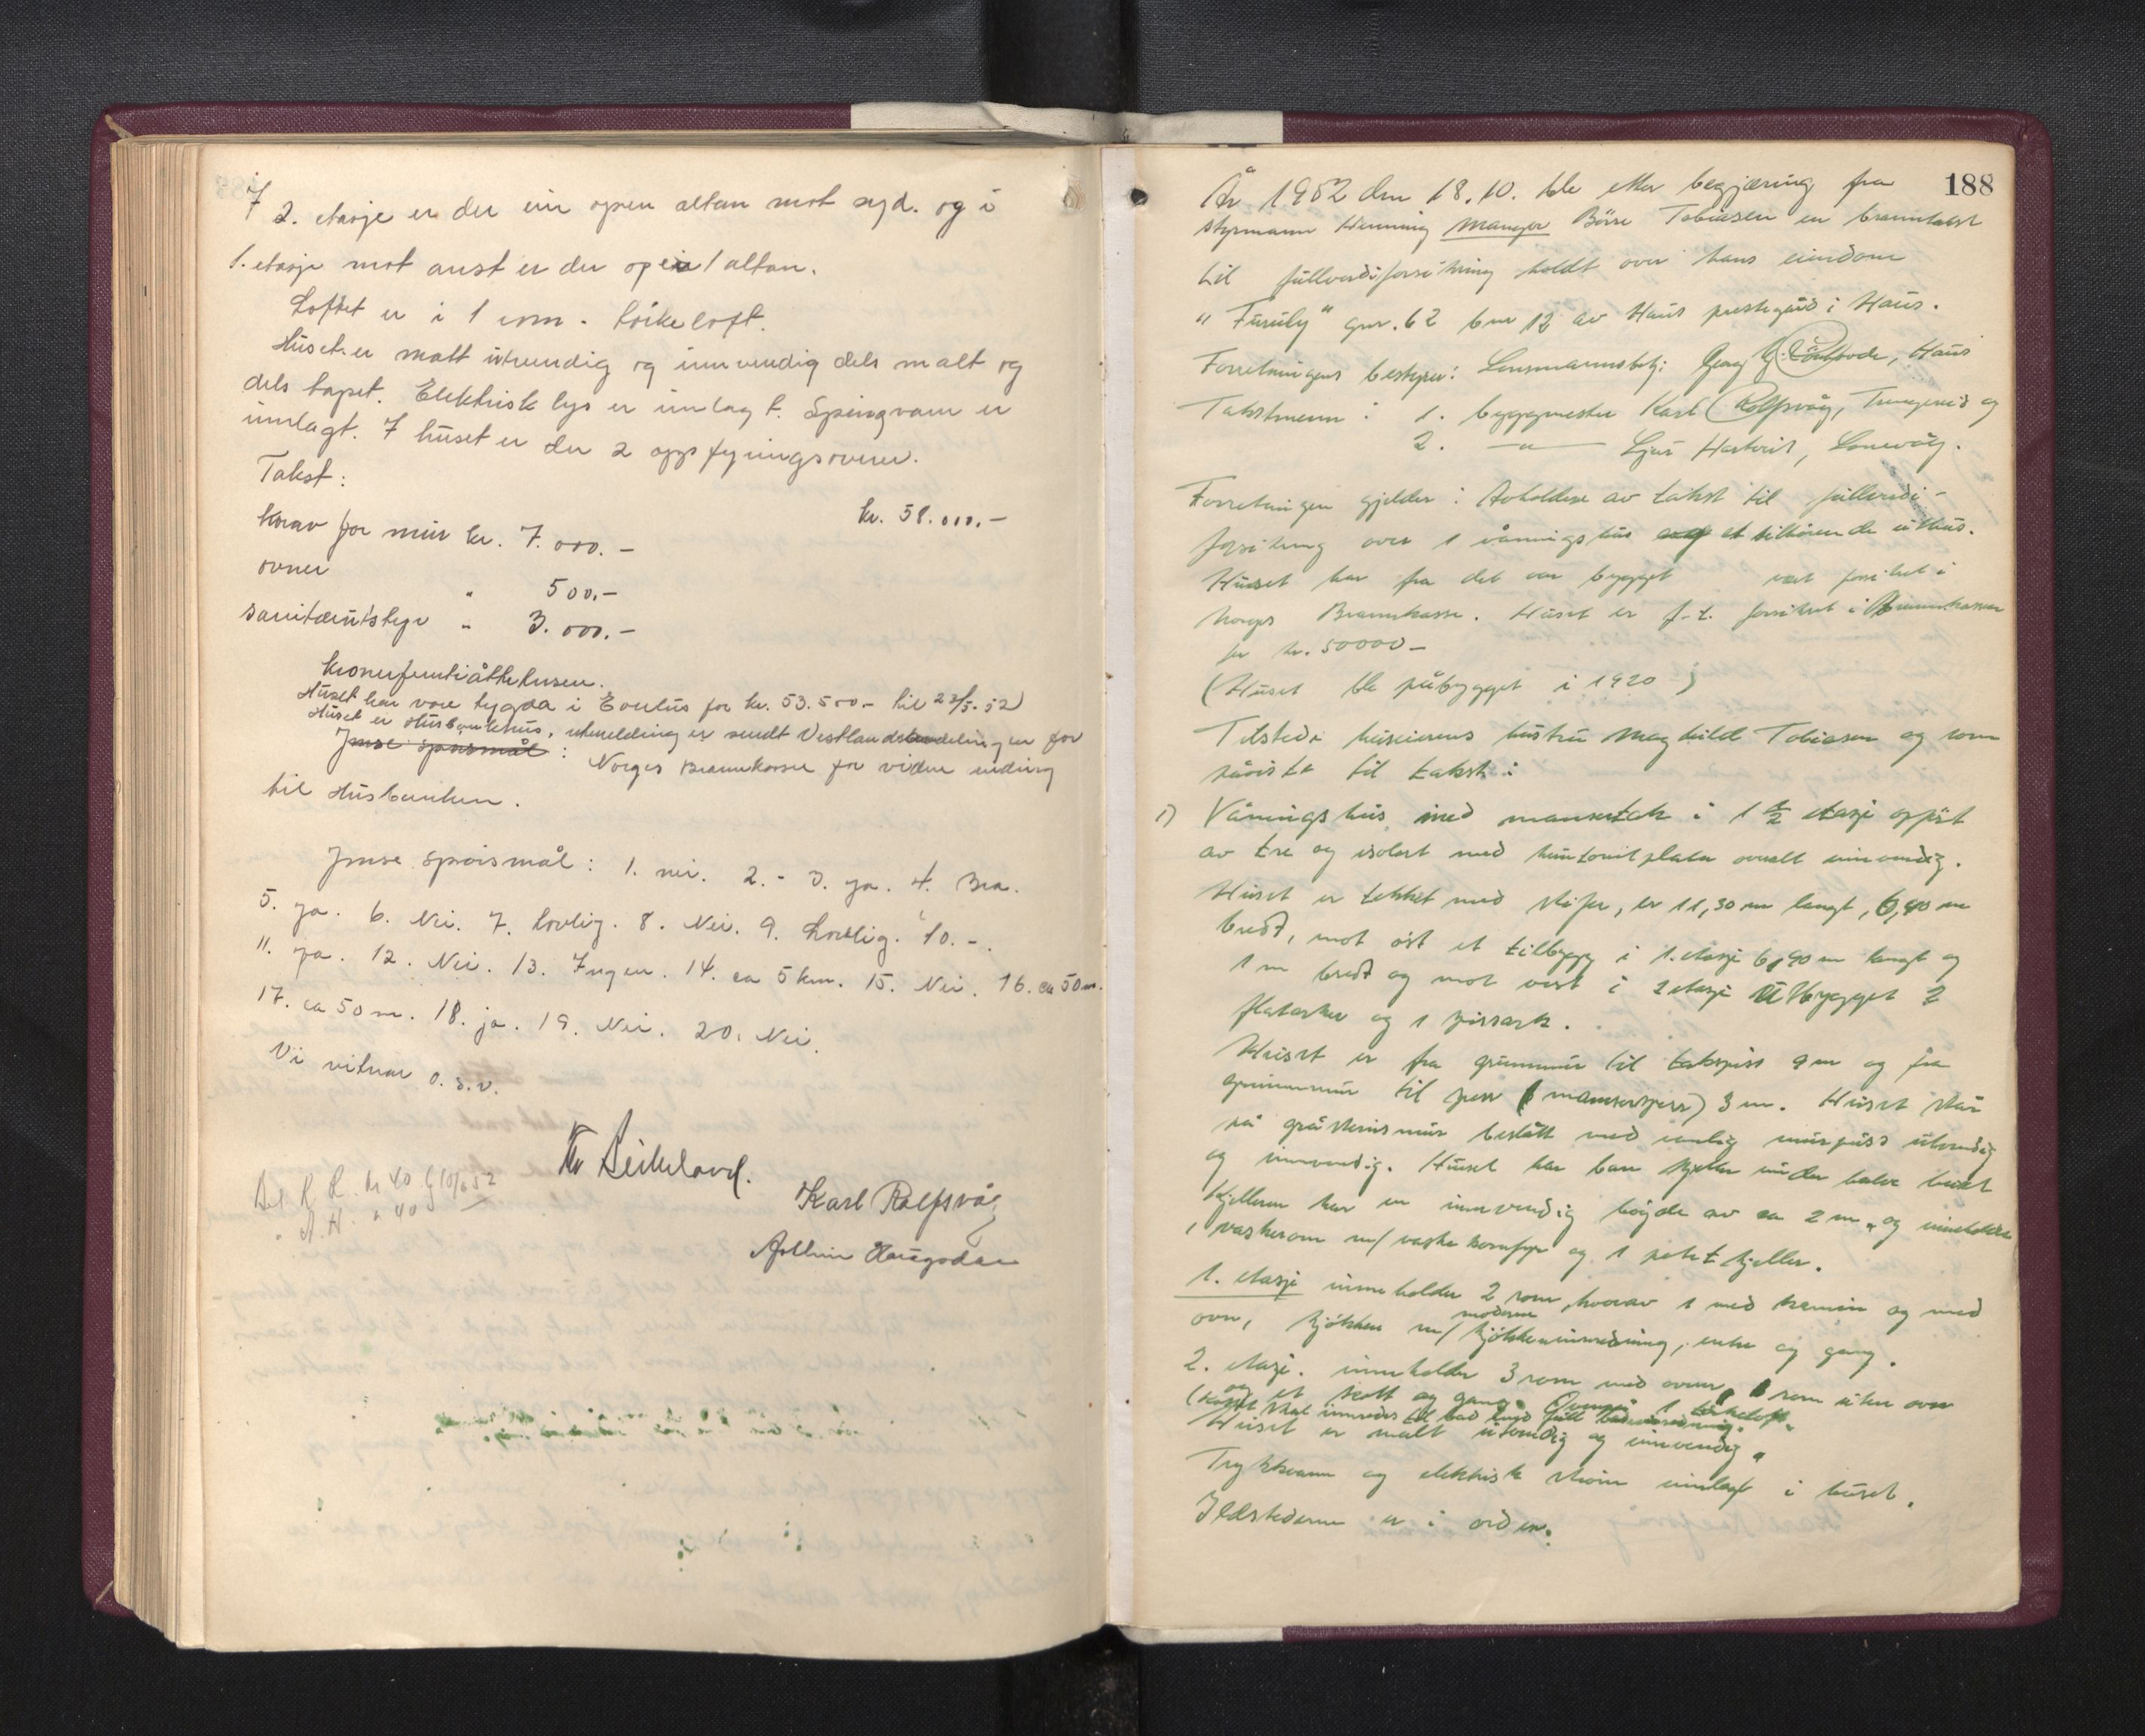 I 2. etasje er der ein open altan mot syd. og i
1. etasje mot aust er der open 1 altan.
Loftet er i 1 rom - törkeloft.
Huset er malt utvendig og innvendig dels malt og
dels tapet. Elektrisk lys er innlagt. Springvann er
innlagt. I huset er der 2 oppfyringsovner.
Takst:
kr. 58.000.-
Krav for mur kr. 7.000.-
ovner " 500.-
sanitærutstyr " 3.000.-
Kronerfemtiåttetusen.
Huset har vore trygda i for kr. 53.500.- til 23/5-52)
Huset er Husbankhus, utmelding er sendt Vestlandsavdelingen for
Ymse spørsmål : Norges Brannkasse for videre sending
til Husbanken.
Ymse spörsmål: 1. nei. 2. - 3. ja. 4. Bra.
5. ja. 6. Nei. 7. Lovlig. 8. Nei. 9. Lovlig. 10. -.
11. ja. 12. Nei. 13. Ingen. 14. ca 5 km. 15. Nei. 16. ca 50 m.
17. ca 50 m. 18. ja. 19. Nei. 20. Nei.
Vi vitnar o.s.v.
Karl Rolfsvåg
188
År 1952 den 18.10. ble etter begjæring fra
styrmann Henning Manger Börre Tobiasen en branntakst
til fullverdiforsikring holdt over hans eiendom
"Furuly" gnr. 62 bnr 12 av Haus prestegård i Haus.
Forretningens bestyrer: Lensmannsbetj: Georg Haus
Takstmenn: 1. byggmester Karl Rolfsvåg, Tunesveit og
2. — " — Hartveit, Lonevåg.
Forretningen gjelder: Avholdelse av takst til fullverdi-
forsikring over 1 våningshus og et tilhörende uthus.
Huset har fra det var bygget vært forsikret i
Norges Brannkasse. Huset er f.t. forsikret i Brannkassen
for kr. 50000-
(Huset ble påbygget i 1920)
Tilstede huseierens hustru Maghild Tobiasen og som
påviste til takst:
1) Våningshus med mansertak i 1 1/2 etasje oppfört
av tre og isolert med huntonitplater overalt innvendig.
Huset er tekket med skifer, er 11,30 m langt, 6,90 m
bredt, mot öst et tilbygg i 1. etasje 6,90 m langt og
1 m bredt og mot vest i 2 etasje utbygget 2
flatarker og 1 spissark.
Huset er fra grunnmur til takspiss 9 m og fra
grunnmur til gesims (mansertgesims) 3 m. Huset står
på gråsteinsmur beslått med vanlig murpuss utvendig
og innvendig. Huset har bare kjeller under halve huset
Kjelleren har en innvendig höyde av ca 2 m. og inneholder
1 vaskerom m/ vaskekomfyr og 1 potetkjeller.
1. etasje inneholder 2 rom, hvorav 1 med kamin og med
ovn, kjökken m/ moderne kjökkeninnredning, entre og gang.
2. etasje. inneholder 3 rom med ovner, 1 rom uten ovn
og et kott og gang. Överst 1 törkeloft.
(Kottet skal innredes til bad med full badeinnredning.
Huset er malt utvendig og innvendig.
Trykkvann og elektrisk ström innlagt i huset.
Ildstederne er i orden.